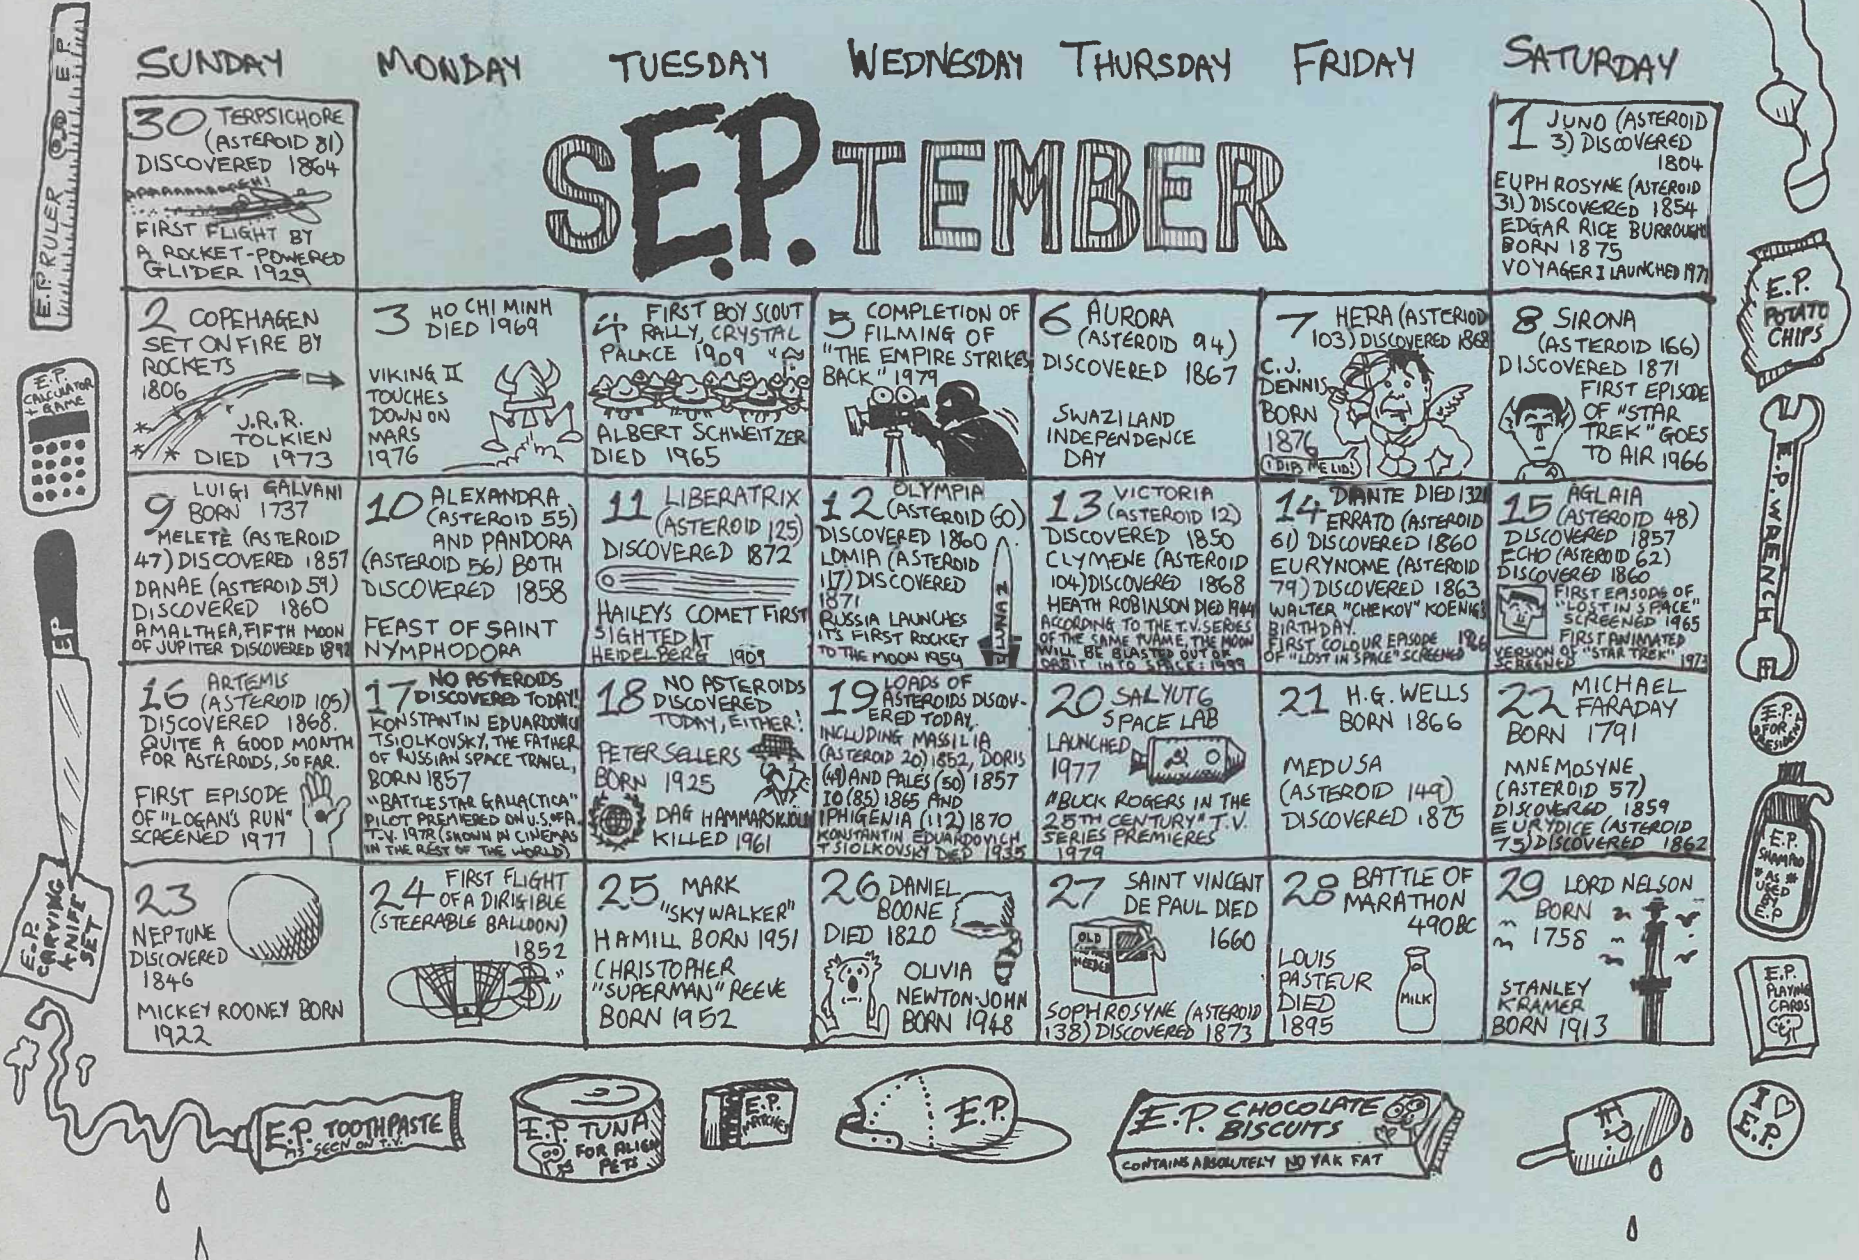 SUNDAY
MONDAY
TUESDAY
WEDNESDAY
THURSDAY
FRIDAY
SATURDAY
SE.P.TEMBER
30 TERPSICHORE
(ASTEROID 81)
DISCOVERED 1864
FIRST FLIGHT BY
A ROCKET-POWERED
GLIDER 1929
1 JUNO (ASTEROID
3) DISCOVERED
1804
EUPHROSYNE (ASTEROID
31) DISCOVERED 1854
EDGAR RICE BURROUGHS
BORN 1875
VOYAGER I LAUNCHED 1977
2 COPEHAGEN
SET ON FIRE BY
ROCKETS
1806
J.R.R.
TOLKIEN
DIED 1973
3 HO CHI MINH
DIED 1969
VIKING II
TOUCHES
DOWN ON
MARS
1976
4 FIRST BOY SCOUT
RALLY, CRYSTAL
PALACE 1909
ALBERT SCHWEITZER
DIED 1965
5 COMPLETION OF
FILMING OF
"THE EMPIRE STRIKES
BACK" 1979
6 AURORA
(ASTEROID 94)
DISCOVERED 1867
SWAZILAND
INDEPENDENCE
DAY
7 HERA (ASTERIOD
103) DISCOVERED 1868
C.J.
DENNIS
BORN
1876
I DIPS ME LID!
8 SIRONA
(ASTEROID 166)
DISCOVERED 1871
FIRST EPISODE
OF "STAR
TREK" GOES
TO AIR 1966
9 LUIGI GALVANI
BORN 1737
MELETE (ASTEROID
47) DISCOVERED 1857
DANAE (ASTEROID 59)
DISCOVERED 1860
AMALTHEA, FIFTH MOON
OF JUPITER DISCOVERED 1892
10 ALEXANDRA
(ASTEROID 55)
AND PANDORA
(ASTEROID 56) BOTH
DISCOVERED 1858
FEAST OF SAINT
NYMPHODORA
11 LIBERATRIX
(ASTEROID 125)
DISCOVERED 1872
HAILEY'S COMET FIRST
SIGHTED AT
HEIDELBERG 1909
12 OLYMPIA
(ASTEROID 60)
DISCOVERED 1860
LOMIA (ASTEROID
117) DISCOVERED
1871
RUSSIA LAUNCHES
IT'S FIRST ROCKET
TO THE MOON 1959
LUNA 2
13 VICTORIA
(ASTEROID 12)
DISCOVERED 1850
CLYMENE (ASTEROID
104) DISCOVERED 1868
HEATH ROBINSON DIED 1944
ACCORDING TO THE T.V. SERIES
OF THE SAME NAME, THE MOON
WILL BE BLASTED OUT OF
ORBIT INTO SPACE: 1999
14 DANTE DIED 1321
ERRATO (ASTEROID
61) DISCOVERED 1860
EURYNOME (ASTEROID
79) DISCOVERED 1863
WALTER "CHEKOV" KOENIG'S
BIRTHDAY.
FIRST COLOUR EPISODE 1966
OF "LOST IN SPACE" SCREENED
15 AGLAIA
(ASTEROID 48)
DISCOVERED 1857
ECHO (ASTEROID 62)
DISCOVERED 1860
FIRST EPISODE OF
"LOST IN SPACE"
SCREENED 1965
FIRST ANIMATED
VERSION OF "STAR TREK"
SCREENED 1973
16 ARTEMIS
(ASTEROID 105)
DISCOVERED 1868.
QUITE A GOOD MONTH
FOR ASTEROIDS, SO FAR.
FIRST EPISODE
OF "LOGAN'S RUN"
SCREENED 1977
17 NO ASTEROIDS
DISCOVERED TODAY!
KONSTANTIN EDUARDOVICH
TSIOLKOVSKY, THE FATHER
OF RUSSIAN SPACE TRAVEL,
BORN 1857
"BATTLESTAR GALLACTICA"
PILOT PREMIERED ON U.S. OF A.
T.V. 1978 (SHOWN IN CINEMAS
IN THE REST OF THE WORLD)
18 NO ASTEROIDS
DISCOVERED
TODAY, EITHER!
PETER SELLERS
BORN 1925
DAG HAMMARSKJOLD
KILLED 1961
19 LOADS OF
ASTEROIDS DISCOV-
ERED TODAY,
INCLUDING MASSILIA
(ASTEROID 20) 1852, DORIS
(49) AND PALES (50) 1857
IO (85) 1865 AND
IPHIGENIA (112) 1870
KONSTANTIN EDUARDOVICH
TSIOLKOVSKY DIED 1935
20 SALYUT 6
SPACE LAB
LAUNCHED
1977
"BUCK ROGERS IN THE
25TH CENTURY" T.V.
SERIES PREMIERES
1979
21 H.G. WELLS
BORN 1866
MEDUSA
(ASTEROID 149)
DISCOVERED 1875
22 MICHAEL
FARADAY
BORN 1791
MNEMOSYNE
(ASTEROID 57)
DISCOVERED 1859
EURYDICE (ASTEROID
75) DISCOVERED 1862
23
NEPTUNE
DISCOVERED
1846
MICKEY ROONEY BORN
1922
24 FIRST FLIGHT
OF A DIRIGIBLE
(STEERABLE BALLOON)
1852
25 MARK
"SKYWALKER"
HAMILL BORN 1951
CHRISTOPHER
"SUPERMAN" REEVE
BORN 1952
26 DANIEL
BOONE
DIED 1820
OLIVIA
NEWTON-JOHN
BORN 1948
27 SAINT VINCENT
DE PAUL DIED
1660
OLD
NEEDED
SOPHROSYNE (ASTEROID
138) DISCOVERED 1873
28 BATTLE OF
MARATHON
490BC
LOUIS
PASTEUR
DIED
1895
MILK
29 LORD NELSON
BORN
1758
STANLEY
KRAMER
BORN 1913
E.P. RULER
E.P.
E.P.
CALCULATOR
+ GAME
EP
E.P.
CARVING
KNIFE
SET
E.P. TOOTHPASTE
AS SEEN ON T.V.
E.P. TUNA
FOR ALIEN
PETS
E.P.
MATCHES
E.P.
E.P. CHOCOLATE
BISCUITS
CONTAINS ABSOLUTELY NO YAK FAT
E.P.
I ♡
E.P.
E.P.
POTATO
CHIPS
E.P. WRENCH
E.P.
FOR
PRESIDENT
E.P.
SHAMPOO
*AS*
USED
BY
E.P
E.P.
PLAYING
CARDS